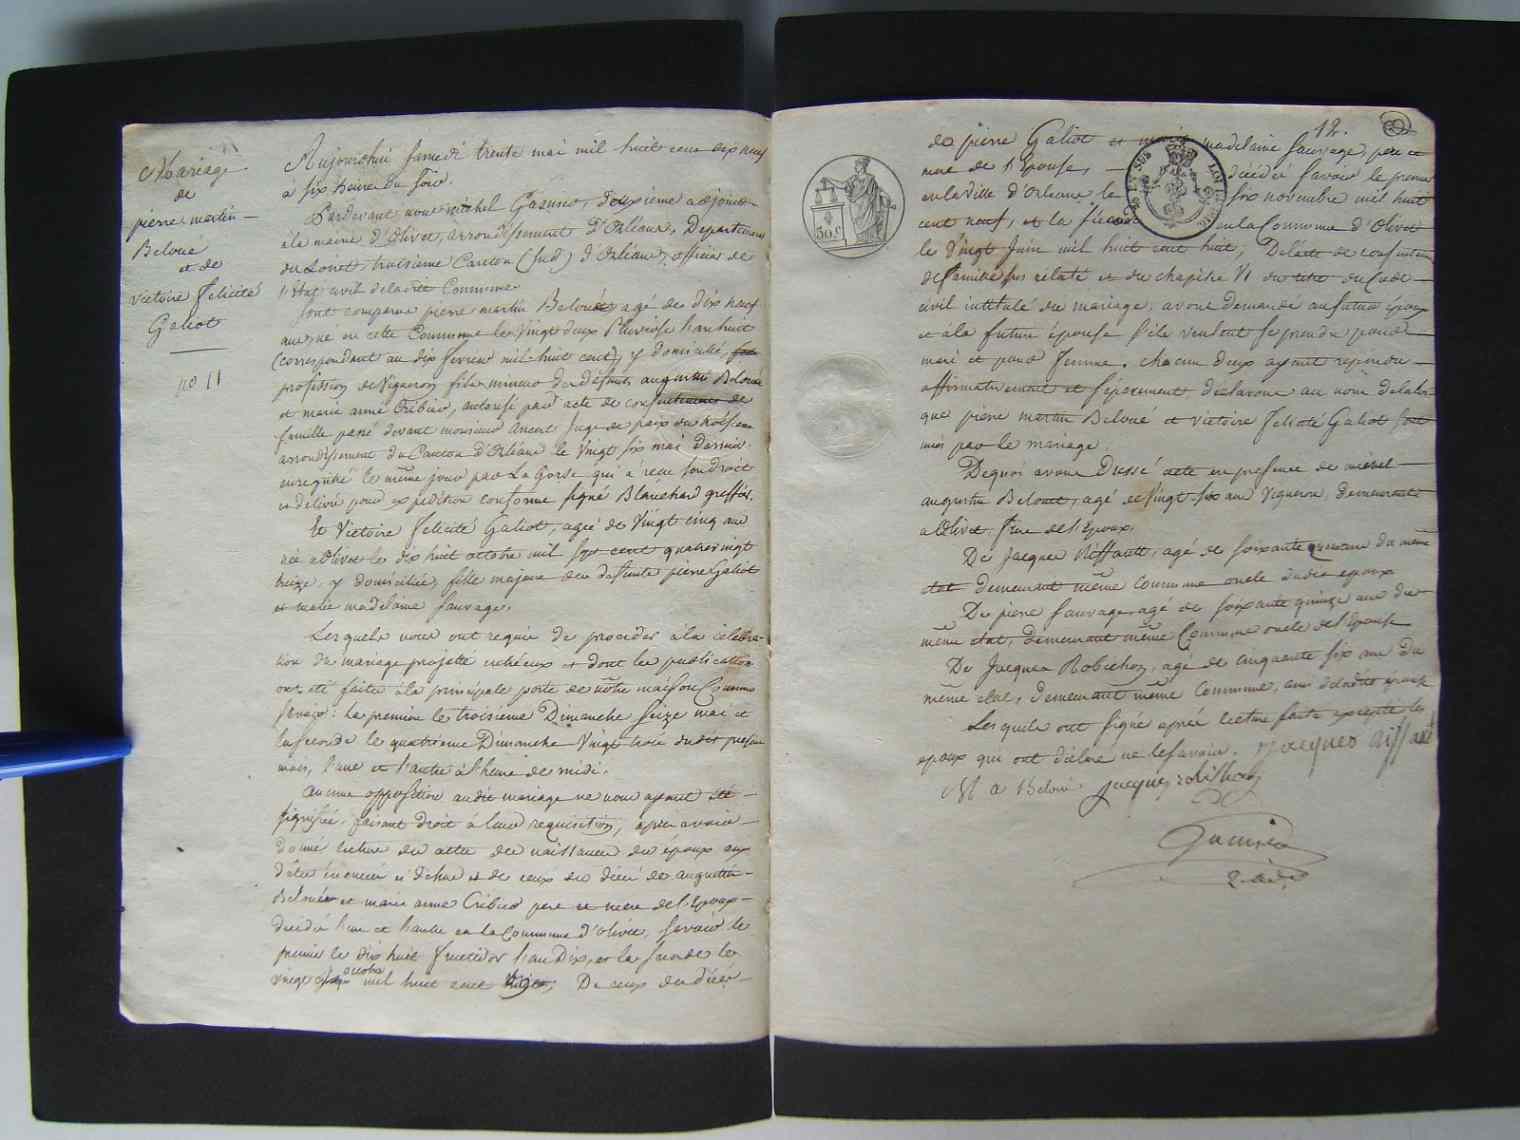 Mariage
de
pierre martin
Beloué
et de
victoire felicité
Galiot
no 11
Aujourdhui samedi trente mai mil huit cent dix neuf
a six heures du soir.
Pardevant nous michel deuxieme adjoint
à la mairie d'Olivet, arrondissement d'Orléans, Departement
du Loiret, troisieme Canton (sud) d'Orléans, officier de
l'état civil de la dite Commune
sont comparus pierre martin Beloué, agé de dix neuf
ans, né en cette Commune le Vingt deux Pluviose l'an huit
(correspondant au dix fevrier mil huit cent) y domicilié,
profession de Vigneron fils mineur des défunts augustin Beloué
et marie anne autorisé par acte de consentement de
famille passé devant monsieur juge de paix du troisieme
arrondissement du Canton d'Orléans le Vingt six mai dernier
enregistré le même jour par La Gorse qui a reçu son droit
et délivré pour expedition conforme signé Blanchard greffier.
Et Victoire felicité Galiot, agée de Vingt cinq ans
née a Olivet le dix huit octobre mil sept cent quatrevingt
treize, y domiciliée, fille majeure des defunts pierre Galiot
et marie madelaine sauvage.
Lesquels nous ont requis de proceder à la celebra-
tion du mariage projetté entr'eux et dont les publications
ont été faites à la principale porte de nôtre maison Commune
savoir: la premiere le troisieme Dimanche seize mai et
la seconde le quatrieme Dimanche Vingt trois dudit present
mois, l'une et l'autre à l'heure de midi.
Aucune opposition audit mariage ne nous ayant été
signifiée, faisant droit à leur requisition, après avoir
donné lecture des actes de naissance des époux aux
et de ceux de décès de augustin
Beloué et marie anne pere et mere de l'Epoux
décédés l'un et l'autre en la Commune d'Olivet, savoir le
premier le dix huit fructidor l'an Dix, et la seconde le
vingt octobre mil huit cent De ceux de décès
12.
de pierre Galiot et marie madelaine sauvage, pere et
mere de l'Epouse, décédés savoir le premier
en la Ville d'Orléans le six novembre mil huit
cent neuf, et la seconde en la Commune d'Olivet
le Vingt Juin mil huit cent huit, De l'acte de consentement
de famille sus relaté et du chapitre VI du titre du Code
civil intitulé du mariage, avons demandé au futur époux
et à la future épouse s'ils veulent se prendre pour
mari et pour femme. chacun d'eux ayant repondu
affirmativement et séparement déclarons au nom de la loi
que pierre martin Beloué et victoire felicité Galiot sont
unis par le mariage.
De quoi avons Dressé acte en presence de michel
augustin Beloué, agé de Vingt-six ans Vigneron, demeurant
a Olivet frere de l'Epoux.
De Jacques agé de soixante du même
état demeurant même Commune oncle dudit epoux
De pierre sauvage agé de soixante quinze ans du
même état, demeurant même Commune oncle de l'Epouse
De Jacques Robichon, agé de cinquante six ans du
même état, demeurant même Commune, ami de ladite epouse
Lesquels ont signé après lecture faite excepté les
epoux qui ont déclaré ne le savoir.
M a Beloué
50 C